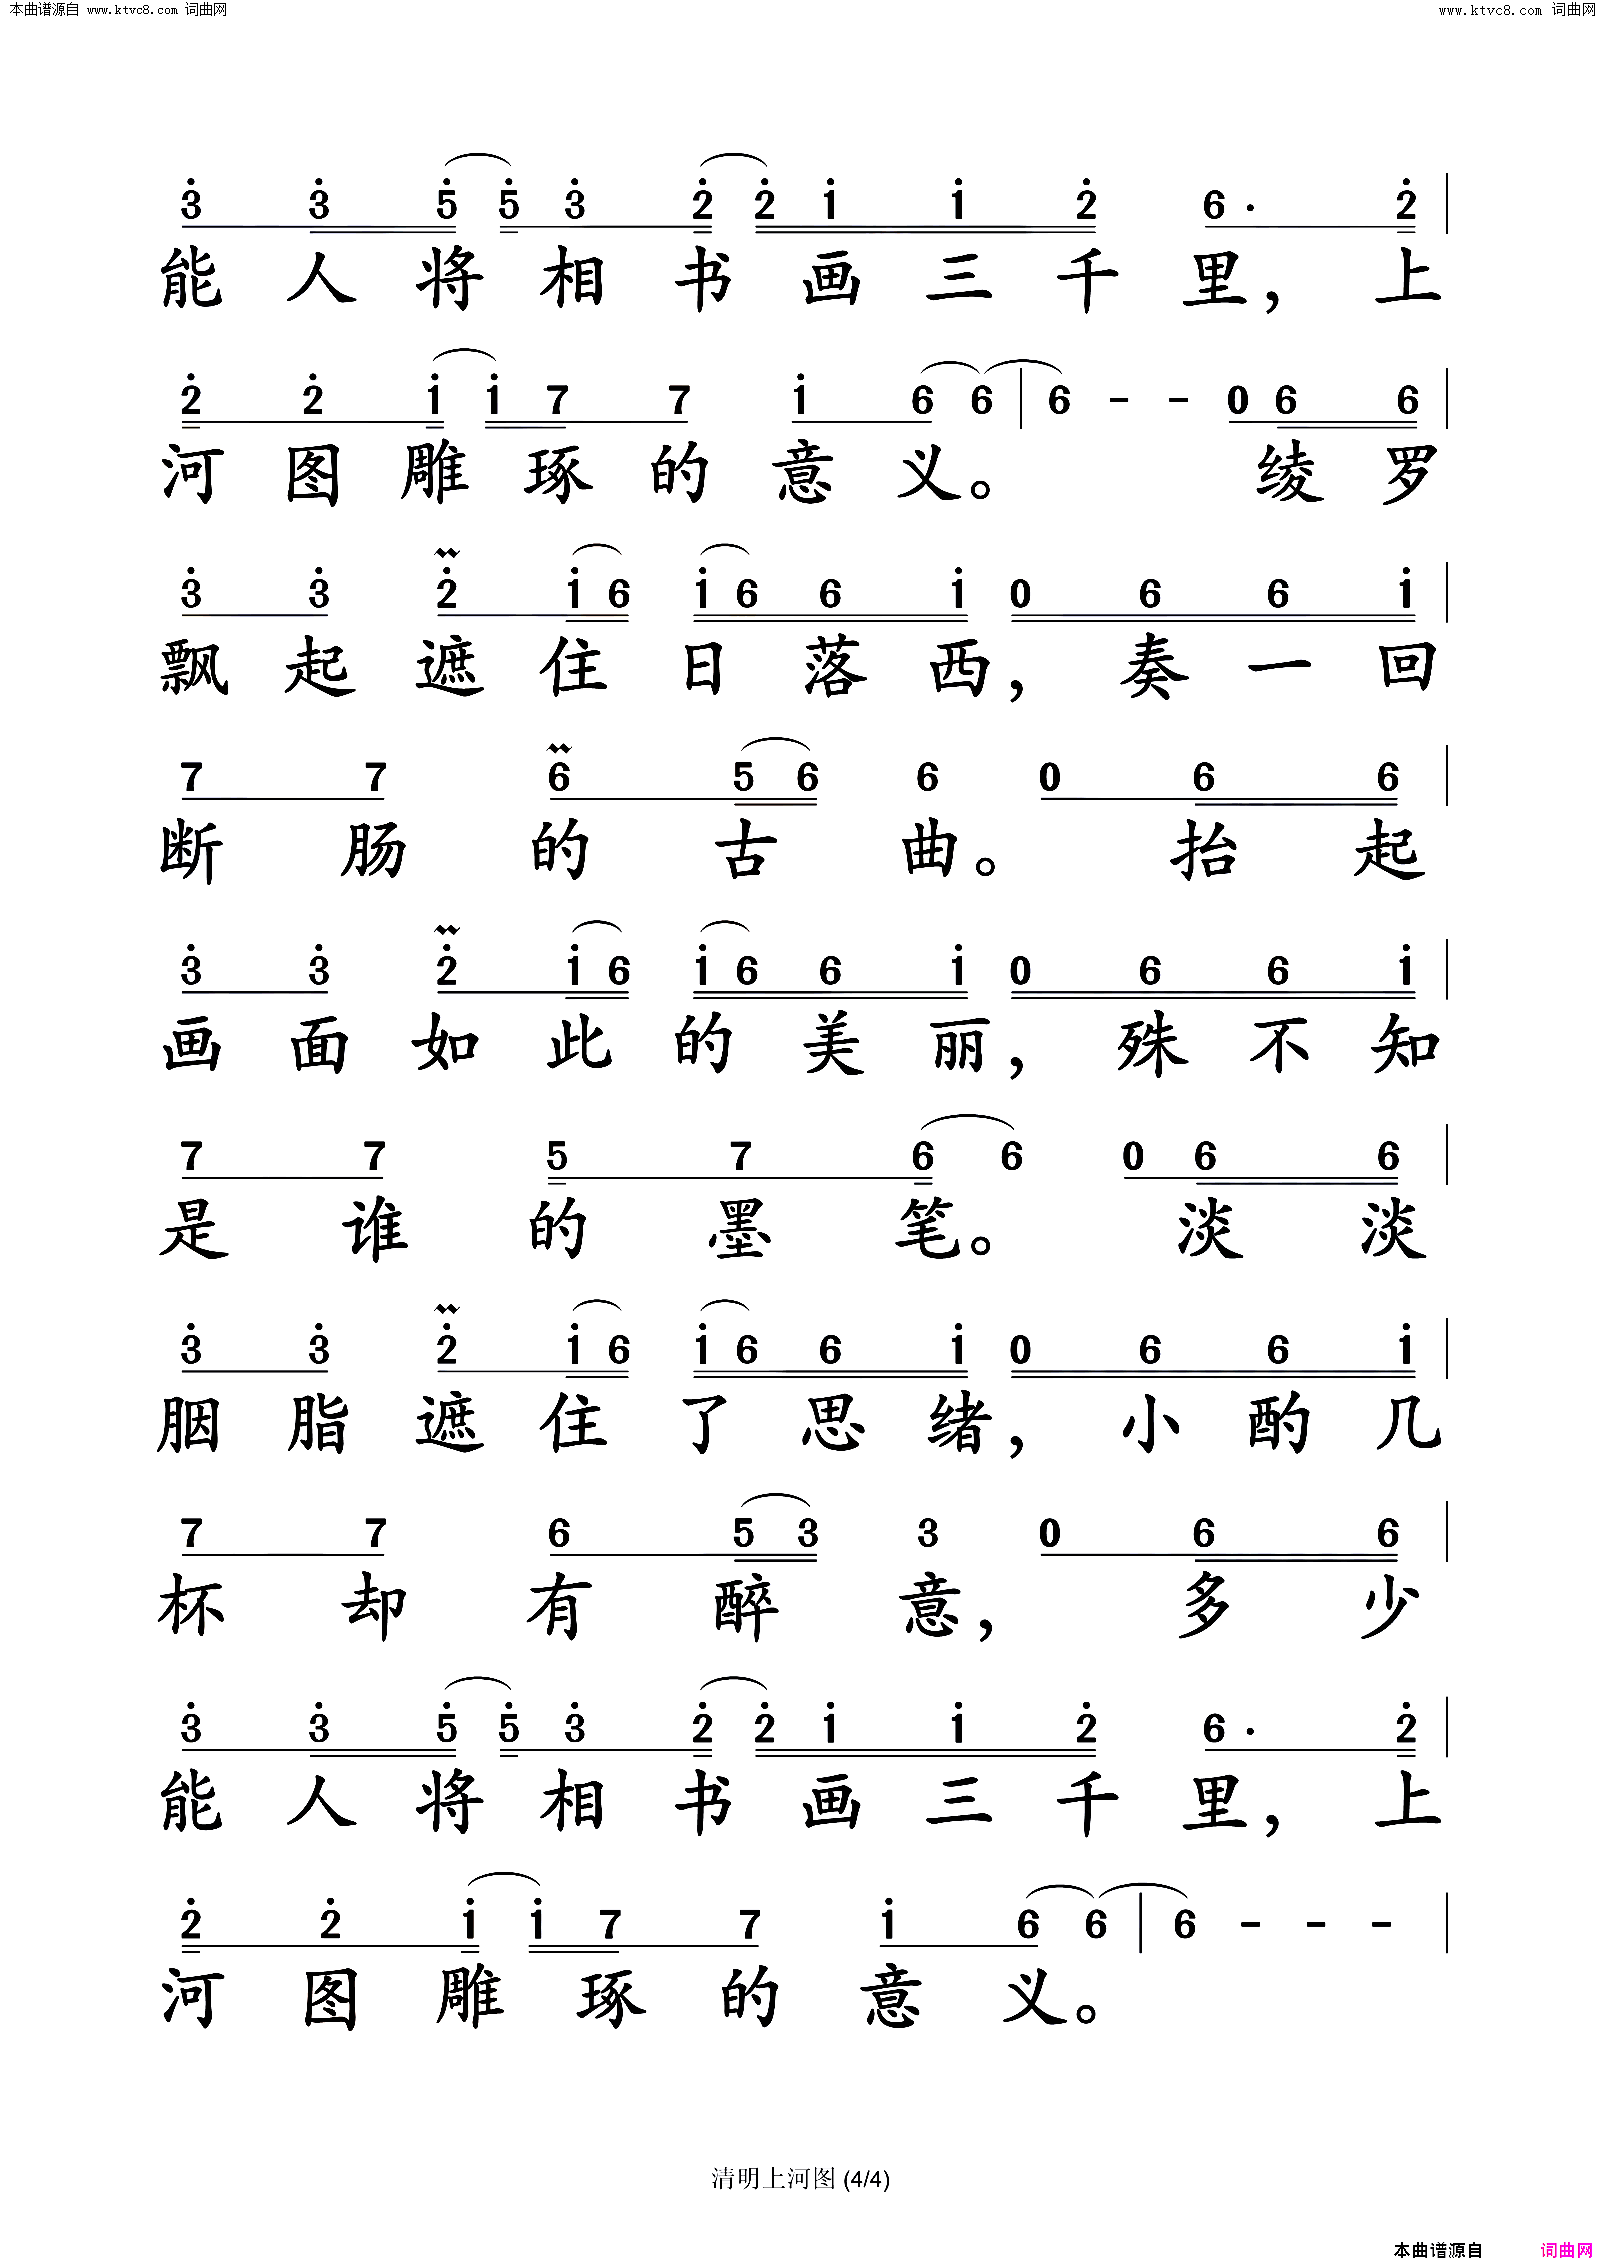 本曲谱源自 www.ktvc8.com 词曲网
www.ktvc8.com 词曲网
3 3 5 5 3 2 2 1 1 2 6· 2
能人将相书画三千里，上
2 2 1 1 7 7 1 6 6 | 6 - - 0 6 6
河图雕琢的意义。 绫罗
3 3 2 1 6 1 6 6 1 0 6 6 1
飘起遮住日落西，奏一回
7 7 6 5 6 6 0 6 6
断肠的古曲。抬起
3 3 2 1 6 1 6 6 1 0 6 6 1
画面如此的美丽，殊不知
7 7 5 7 6 6 0 6 6
是谁的墨笔。淡淡
3 3 2 1 6 1 6 6 1 0 6 6 1
胭脂遮住了思绪，小酌几
7 7 6 5 3 3 0 6 6
杯却有醉意，多少
3 3 5 5 3 2 2 1 1 2 6· 2
能人将相书画三千里，上
2 2 1 1 7 7 1 6 6 | 6 - - -
河图雕琢的意义。
清明上河图 (4/4)
本曲谱源自 词曲网